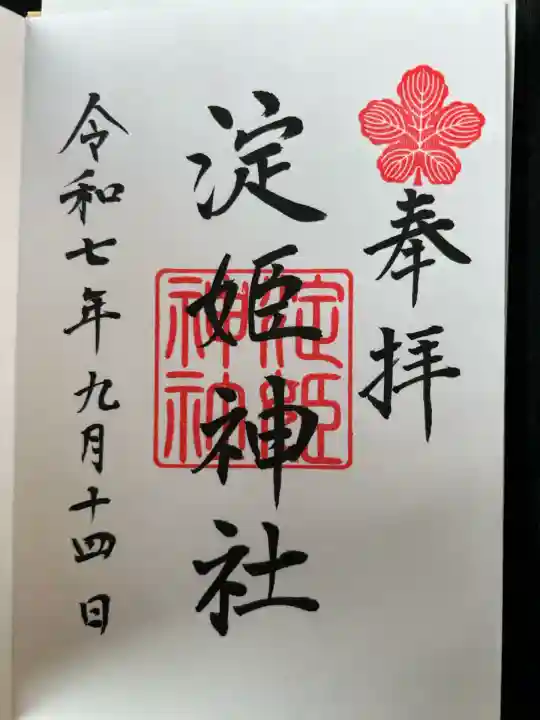 奉拝
淀姫神社
淀姫
神社
令和七年九月十四日